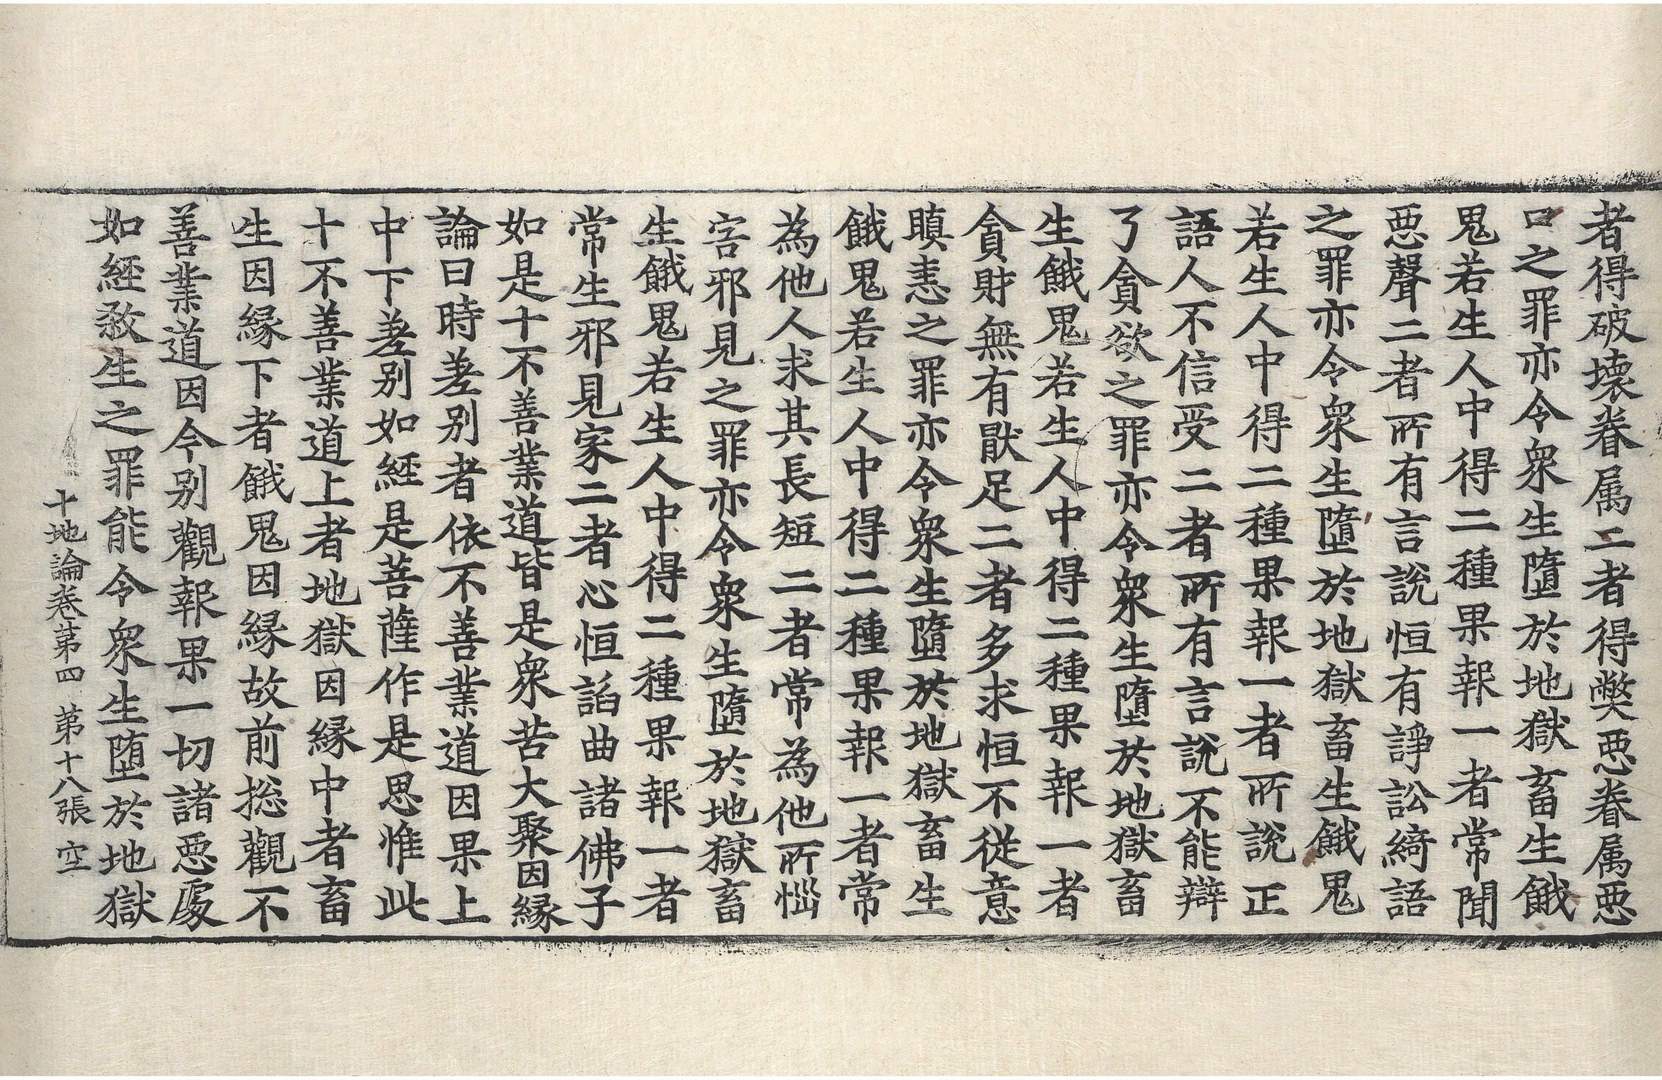 者得破壞眷属二者得弊惡眷属惡
口之罪亦令衆生墮於地獄畜生餓
鬼若生人中得二種果報一者常聞
惡聲二者所有言說恒有諍訟綺語
之罪亦令衆生墮於地獄畜生餓鬼
若生人中得二種果報一者所說正
語人不信受二者所有言說不能辯
了貪欲之罪亦令衆生墮於地獄畜
生餓鬼若生人中得二種果報一者
貪財無有猒足二者多求恒不從意
瞋恚之罪亦令衆生墮於地獄畜生
餓鬼若生人中得二種果報一者常
為他人求其長短二者常為他所惱
害邪見之罪亦令衆生墮於地獄畜
生餓鬼若生人中得二種果報一者
常生邪見家二者心恒諂曲諸佛子
如是十不善業道皆是衆苦大聚因緣
論曰時差别者依不善業道因果上
中下差别如經是菩薩作是思惟此
十不善業道上者地獄因緣中者畜
生因緣下者餓鬼因緣故前捴觀不
善業道因今别觀報果一切諸惡處
如經敎生之罪能令衆生墮於地獄
十地論卷第四 第十八張 空